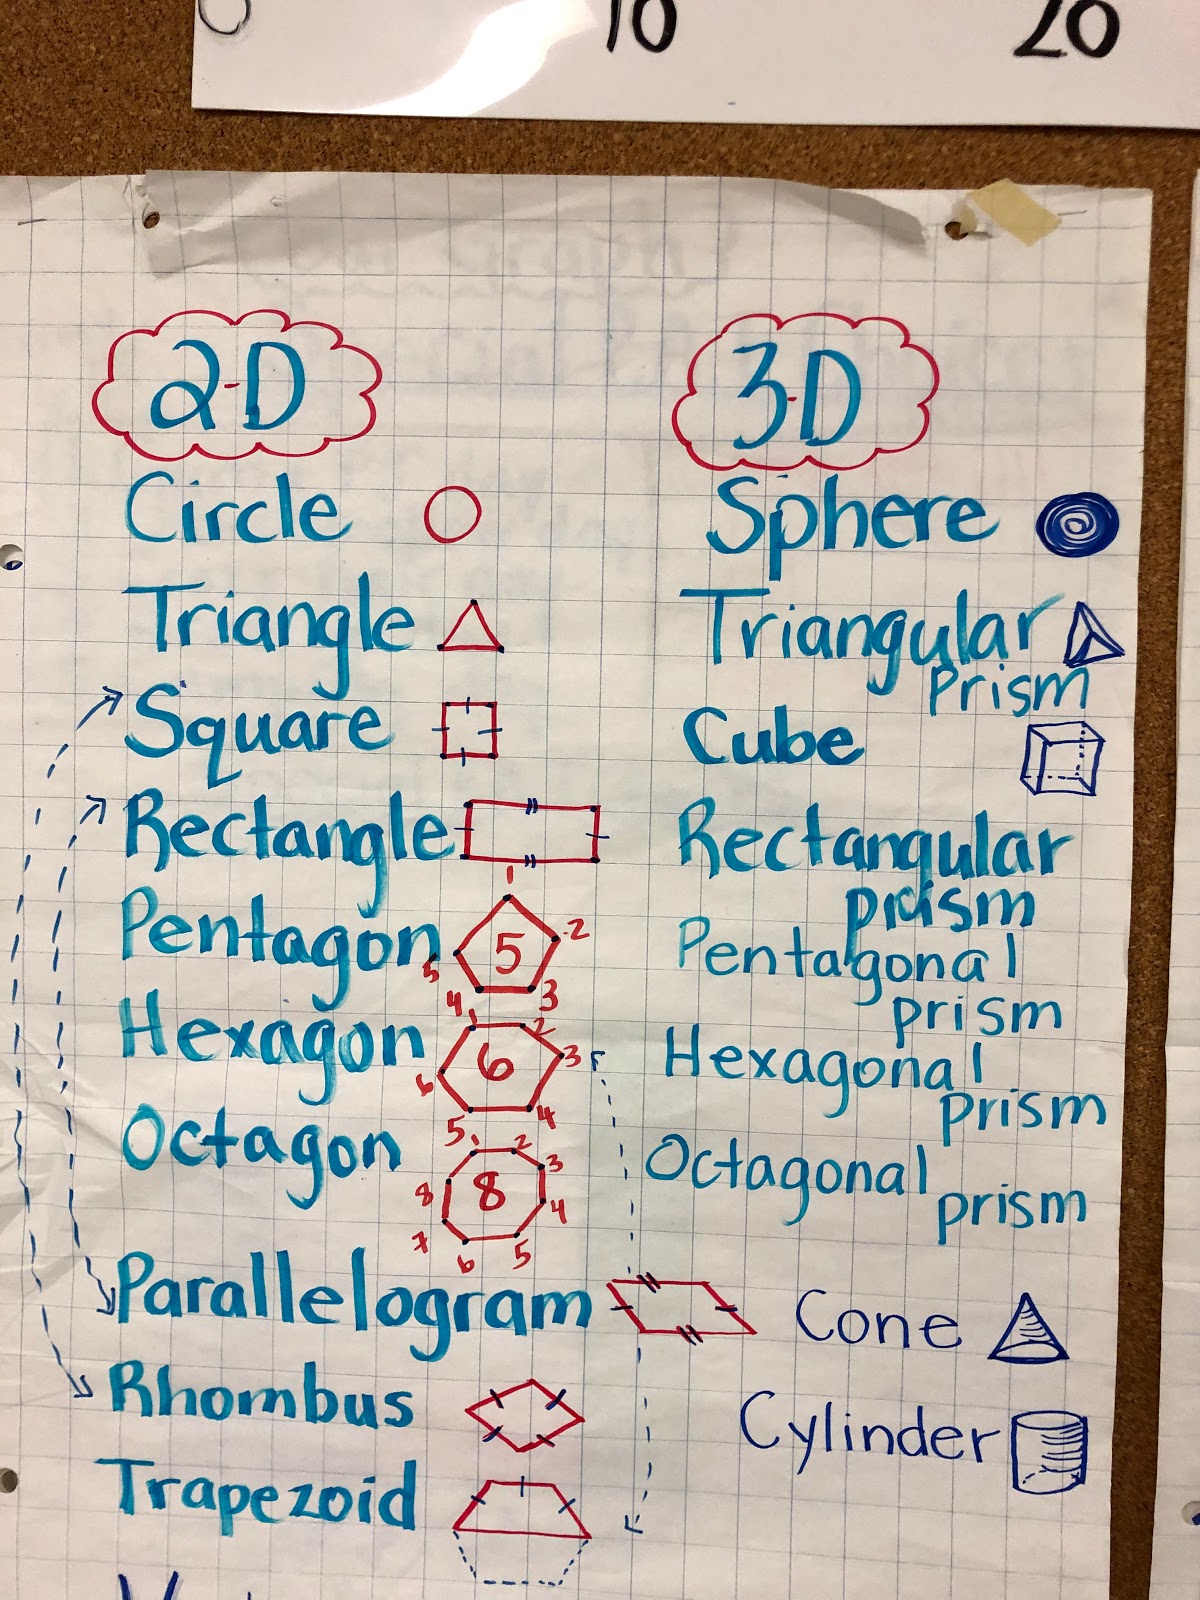 10 20
2-D
3-D
Circle
Sphere
Triangle
Triangular
Prism
Square
Cube
Rectangle
Rectangular
prism
Pentagon
5
1
2
3
4
5
Pentagonal
prism
Hexagon
6
1
2
3
4
5
6
Hexagonal
prism
Octagon
8
1
2
3
4
5
6
7
8
Octagonal
prism
Parallelogram
Cone
Rhombus
Cylinder
Trapezoid